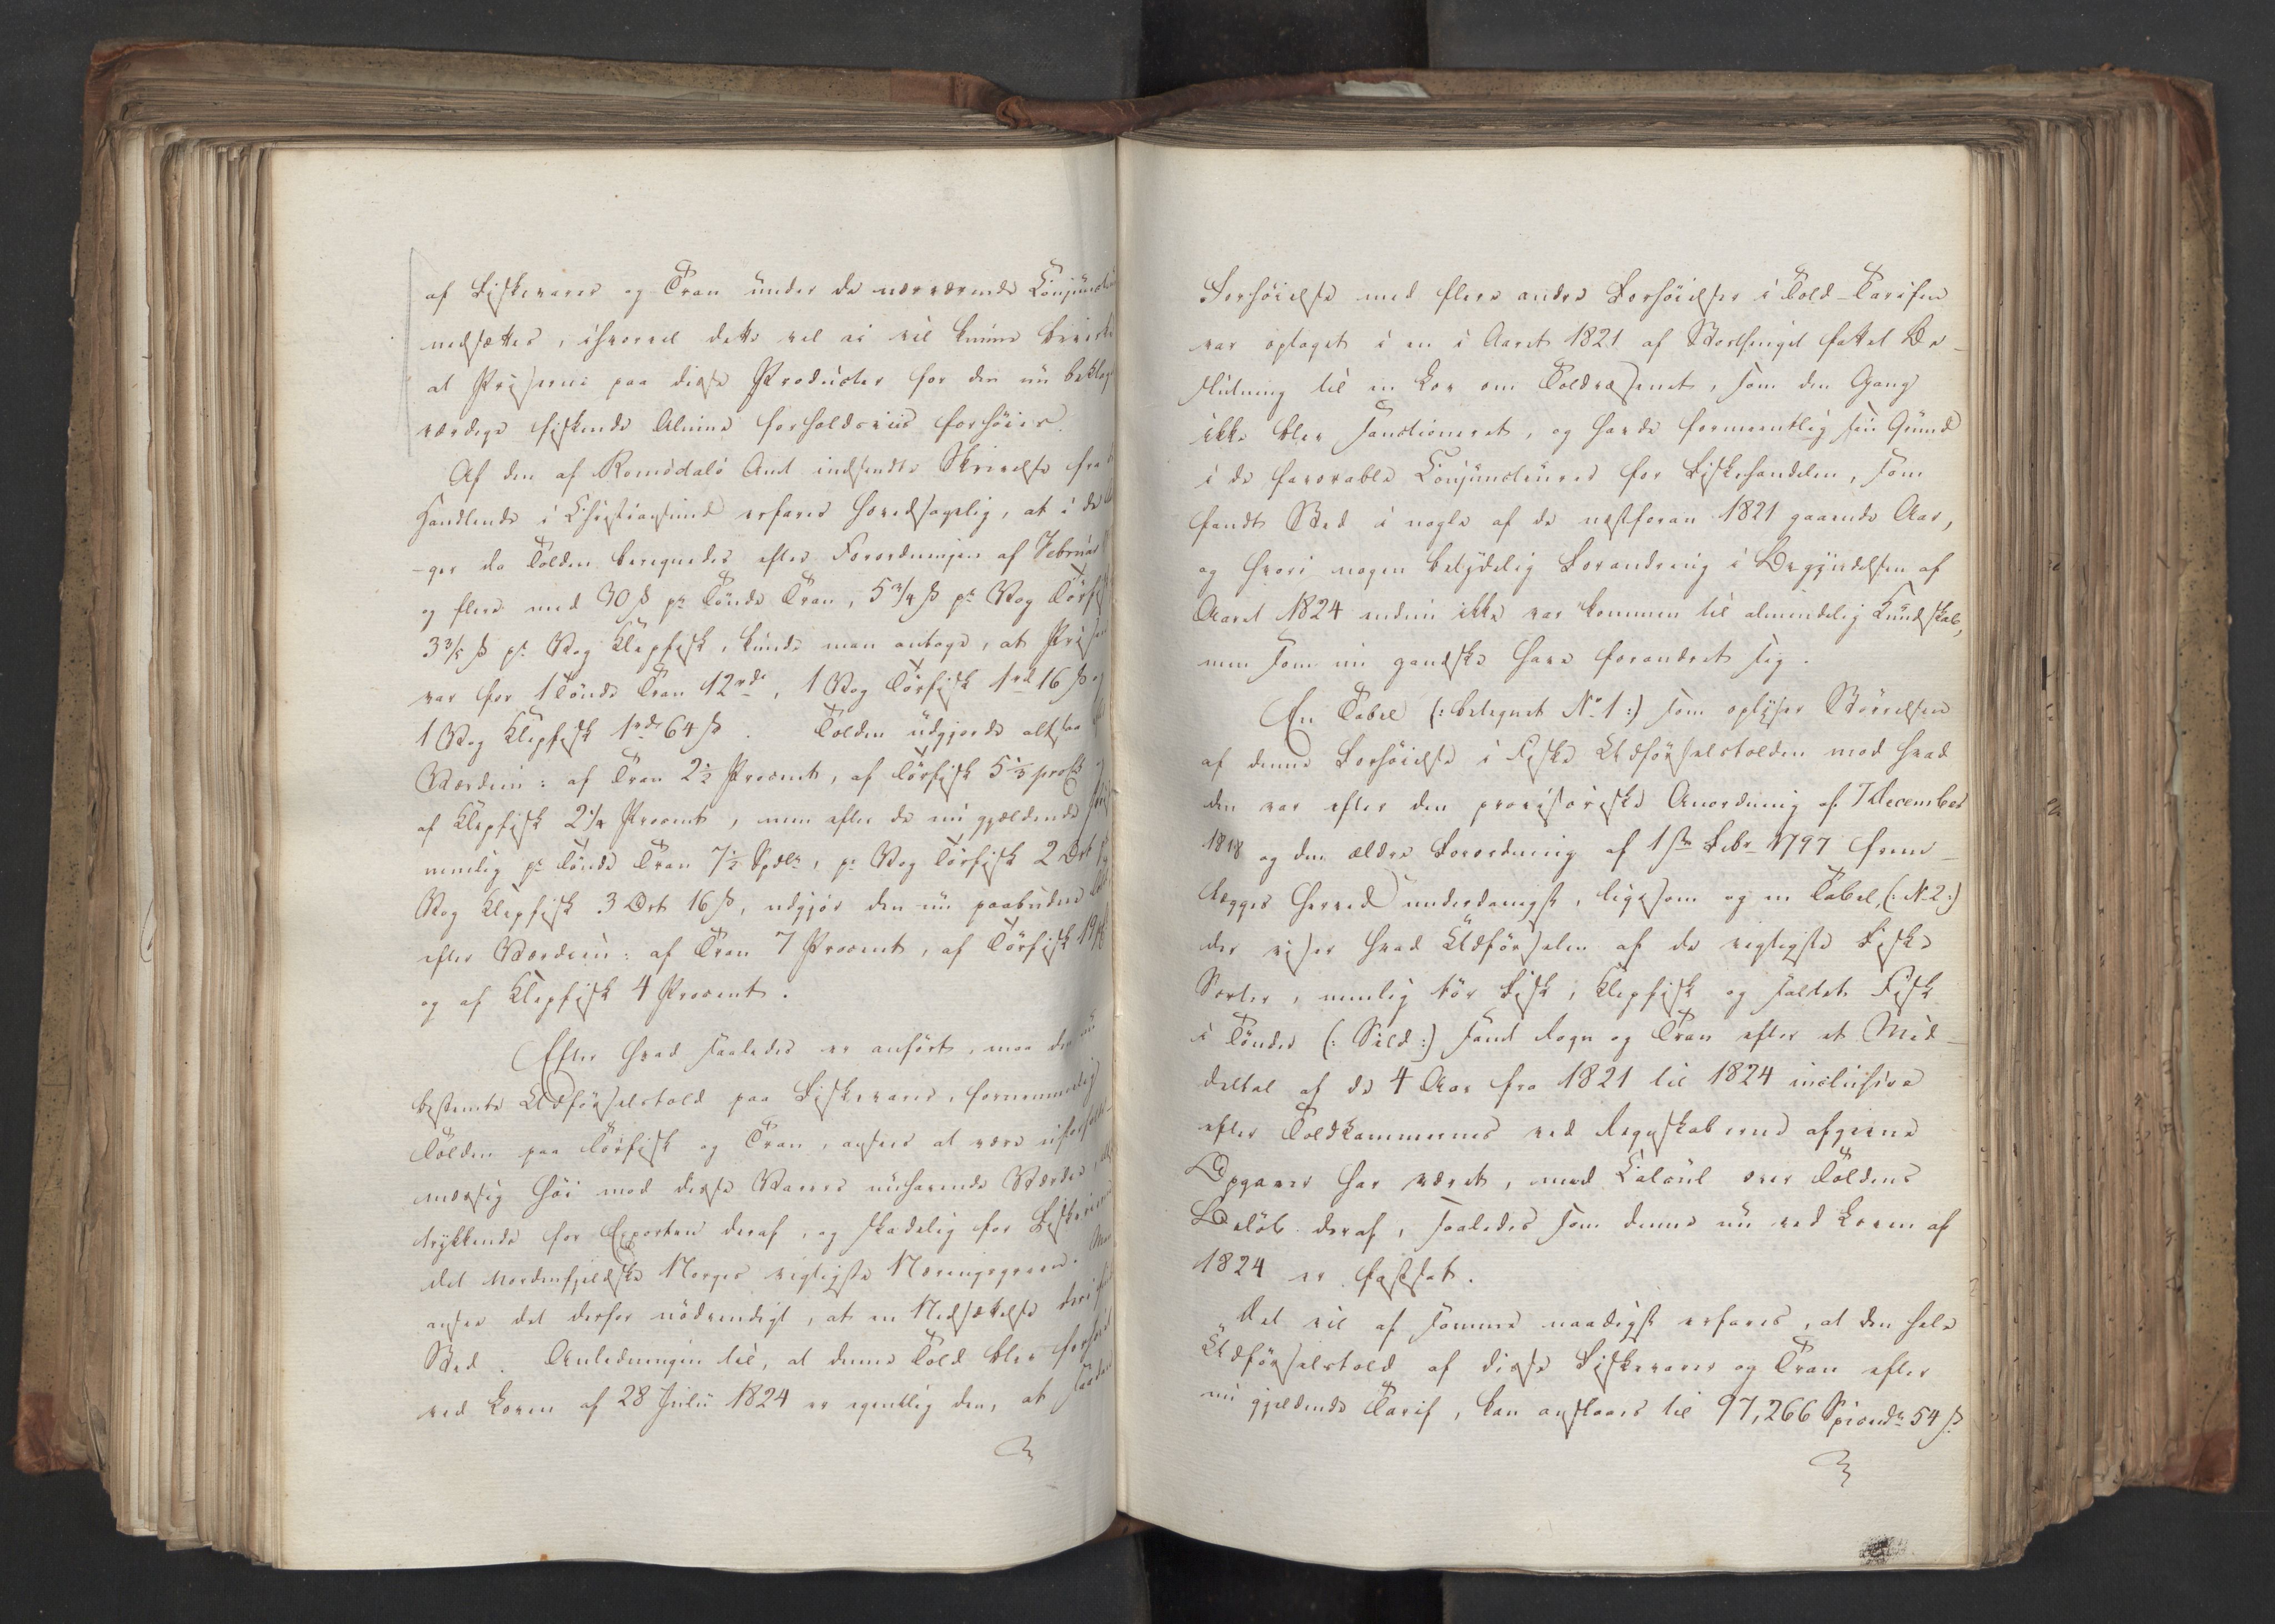 af Fiskevarer og Tran under de nærværende Conjunct
nedsættes, ihvorvel dette vel ei vil kunne bevirke
at Priserne paa disse Producter for den nu beklag
værdige fiskende Almue forholdsviis forhøies.
Af den af Romsdals Amt indsendte Skrivelse fra
Handlende i Christiansund erfares hovedsagelig, at i de
-ger da Tolden beregnedes efter Forordningen af Februar
og flere med 30 ß pr Tønde Tran, 5 3/4 ß pr Vog Tørf
3 3/5 ß pr Vog Klepfisk, kunde man antage, at Pris
var for 1 Tønde Tran 12 rdr, 1 Vog Tørfisk 1 rd 16 ß og
1 Vog Klepfisk 1 rdr 64 ß. Tolden udgjorde altsaa
Værdien: af Tran 2 1/2 Procent, af Tørfisk 5 1/3 proCt
af Klepfisk 2 1/4 Procent, men efter de nu gjældende
nemlig pr Tønde Tran 7 1/2 Spdlr, pr Vog Tørfisk 2 Ort
Vog Klepfisk 3 Ort 16 ß, udgjør den nu paabudne
efter Værdien: af Tran 7 Procent, af Tørfisk
og af Klepfisk 4 Procent.
Efter hvad saaledes er anført, maa den nu
bestemte Udførselstold paa Fiskevarer, fornemmelig
Tolden paa Tørfisk og Tran, ansees at være uforholds-
mæssig høi mod disse Varers nuhavende Værdie,
trykkende for Exporten deraf, og skadelig for Fiskerierne
det Nordenfjeldske Norges vigtigste Næringsgreen. Man
anseer det derfor nødvendigt, at en Nedsættelse deri
Sted. Anledningen til, at denne Told blev forhøiet
ved Loven af 28 Julii 1824 er egentlig den, at saadan
Forhøielse med flere andre Forhøielser i Told-Tarifen
var optaget i en i Aaret 1821 af Storthinget fattet Be-
slutning til en Lov om Toldvæsenet, som den Gang
ikke blev sanctioneret, og havde formeentlig sin Grund
i de favorable Conjuncturer for Fiskehandelen, som
fandt Sted i nogle af de næstforan 1821 gaaende Aar,
og hvori nogen betydelig Forandring i Begyndelsen af
Aaret 1824 endnu ikke var kommen til almindelig Kundskab,
men som nu gandske have forandret sig.
En Tabel (: betegnet No 1 :) som oplyser Størrelsen
af denne Forhøielse i Fiske Udførselstolden mod hvad
den var efter den provisoriske Anordning af 7 December
1818 og den ældre Forordning af 1ste Febr 1797 frem-
lægges herved underdanigst, ligesom og en Tabel, (: No 2 :)
der viser hvad Udførselen af de vigtigste Fiske
Sorter, nemlig tør Fisk, Klepfisk og saltet Fisk
i Tønder (: Sild :) samt Rogn og Tran efter et Mid-
deltal af de 4 Aar fra 1821 til 1824 inclusive
efter Toldkammernes ved Regnskaberne afgivne
Opgaver har været, med Calcul over Toldens
Beløb deraf, saaledes som denne nu ved Loven af
1824 er fastsat.
Det vil af samme naadigst erfares, at den hele
Udførselstold af disse Fiskevarer og Tran efter
nu gjeldende Tarif, kan anslaaes til 97,266 Speciedr 54 ß